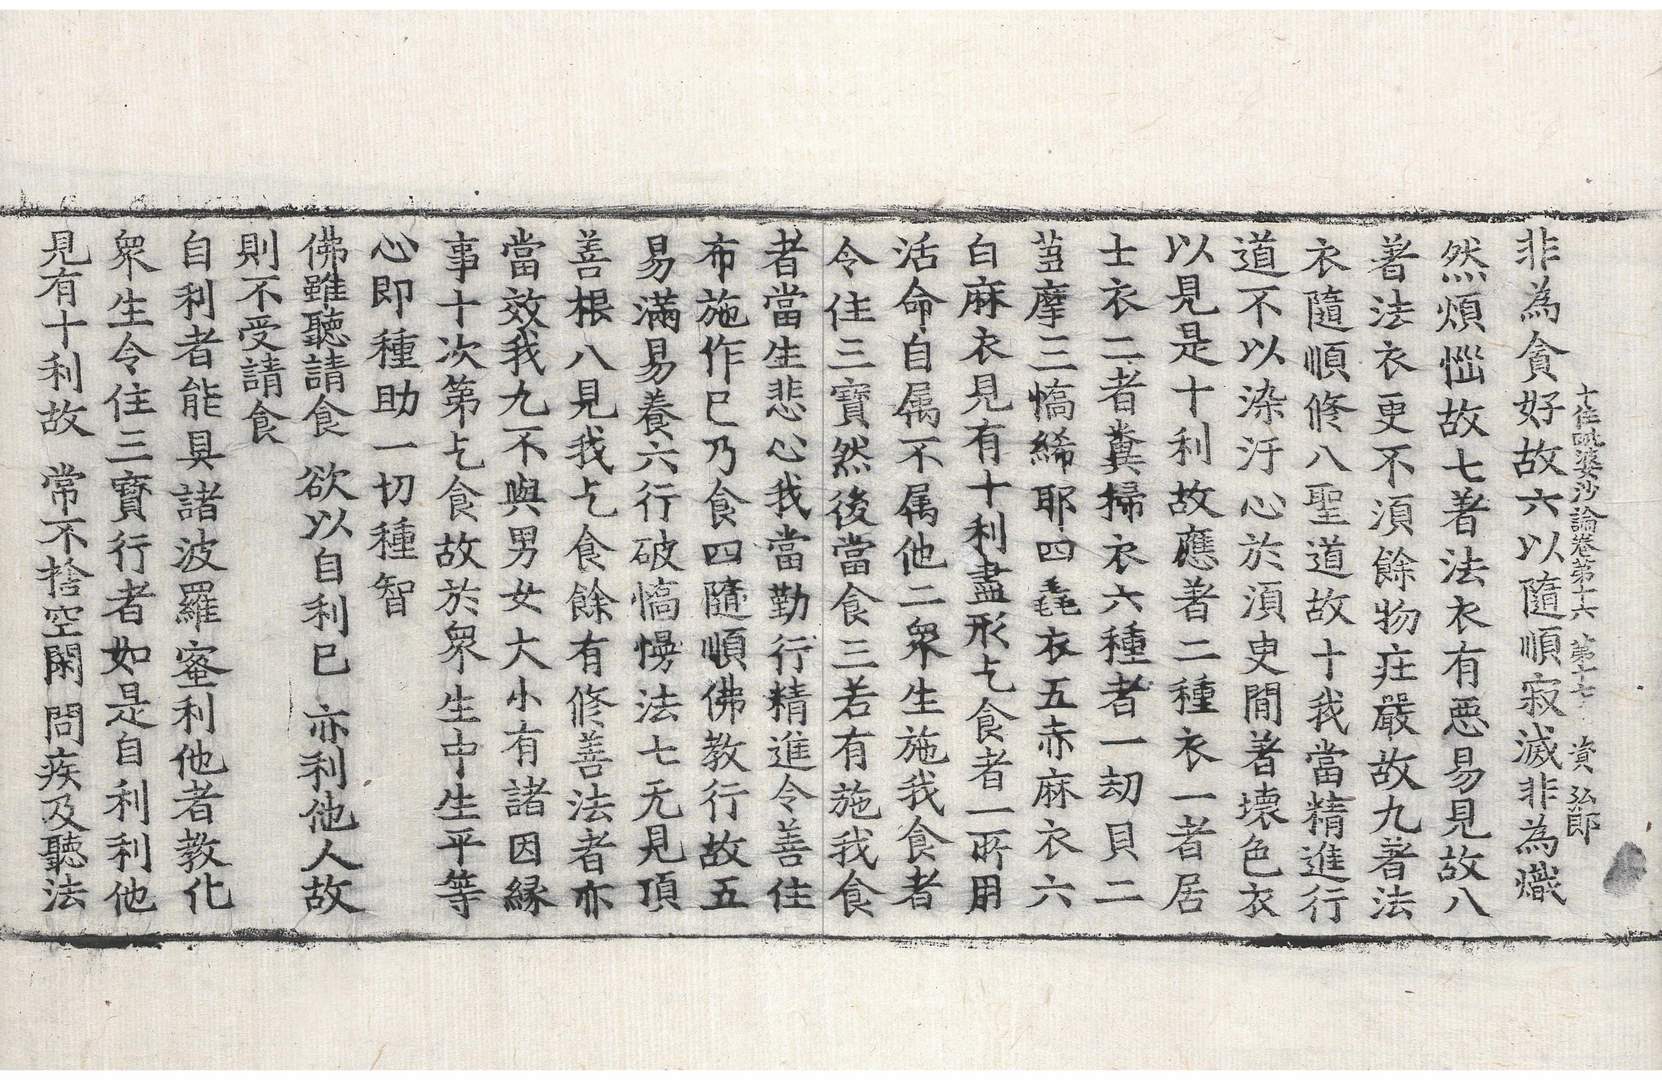 十住毗婆沙論卷第十六 第十七 資 弘郎
非為貪好故六以隨順寂滅非為熾
然煩惱故七著法衣有惡易見故八
著法衣更不湏餘物庄嚴故九著法
衣隨順修八聖道故十我當精進行
道不以染汙心於湏臾間著壞色衣
以見是十利故應著二種衣一者居
士衣二者糞掃衣六種者一劫貝二
芻摩三憍絺耶四毳衣五赤麻衣六
白麻衣見有十利盡形乞食者一所用
活命自属不属他二衆生施我食者
令住三寶然後當食三若有施我食
者當生悲心我當勤行精進令善住
布施作已乃食四隨順佛教行故五
易滿易養六行破憍慢法七无見頂
善根八見我乞食餘有修善法者亦
當效我九不與男女大小有諸因緣
事十次第乞食故於衆生中生平等
心即種助一切種智
佛雖聽請食 欲以自利已 亦利他人故
則不受請食
自利者能具諸波羅蜜利他者教化
衆生令住三寶行者如是自利利他
見有十利故 常不捨空閑 問疾及聽法